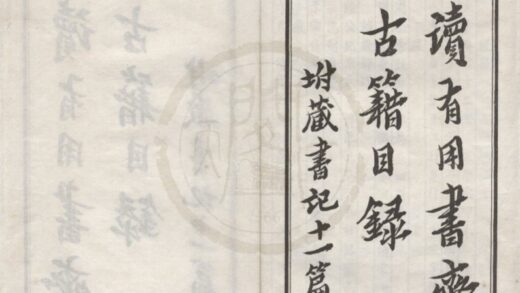 讀有用書齋
古籍目錄
坿藏書記十一篇